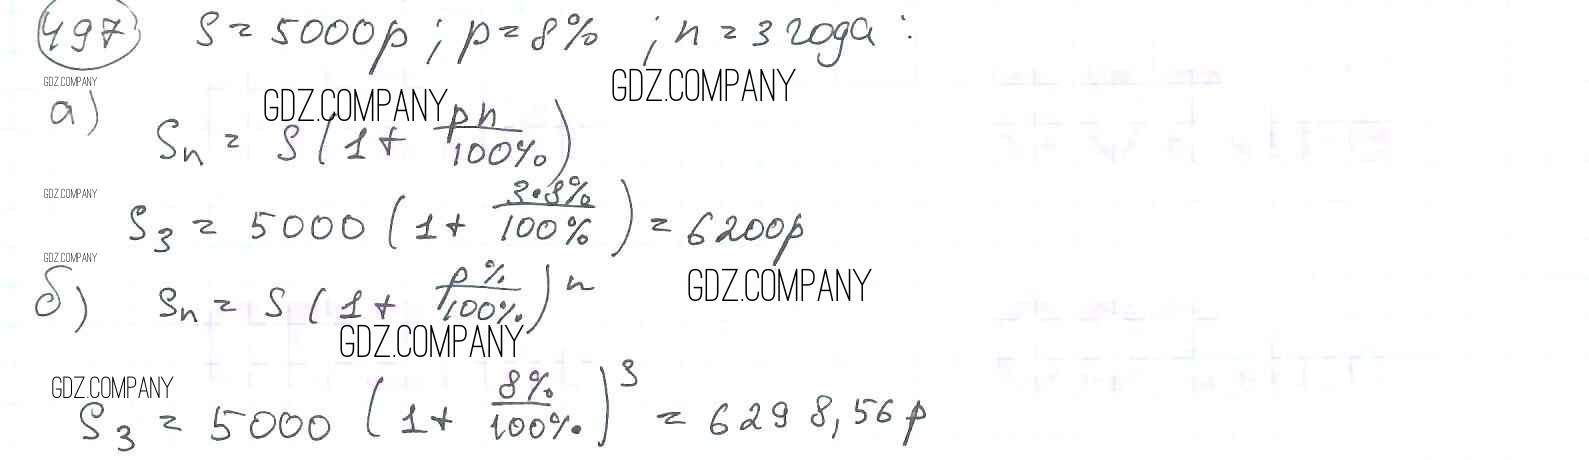 497 S = 5000р ; p = 8% ; n = 3 года :
GDZ.COMPANY GDZ.COMPANY
а) GDZ.COMPANY
Sn = S (1 + pn/100%)
GDZ.COMPANY
S3 = 5000 (1 + 3·8%/100%) = 6200р
GDZ.COMPANY
б) Sn = S (1 + p%/100%)^n GDZ.COMPANY
GDZ.COMPANY
GDZ.COMPANY
S3 = 5000 (1 + 8%/100%)^3 = 6298,56р